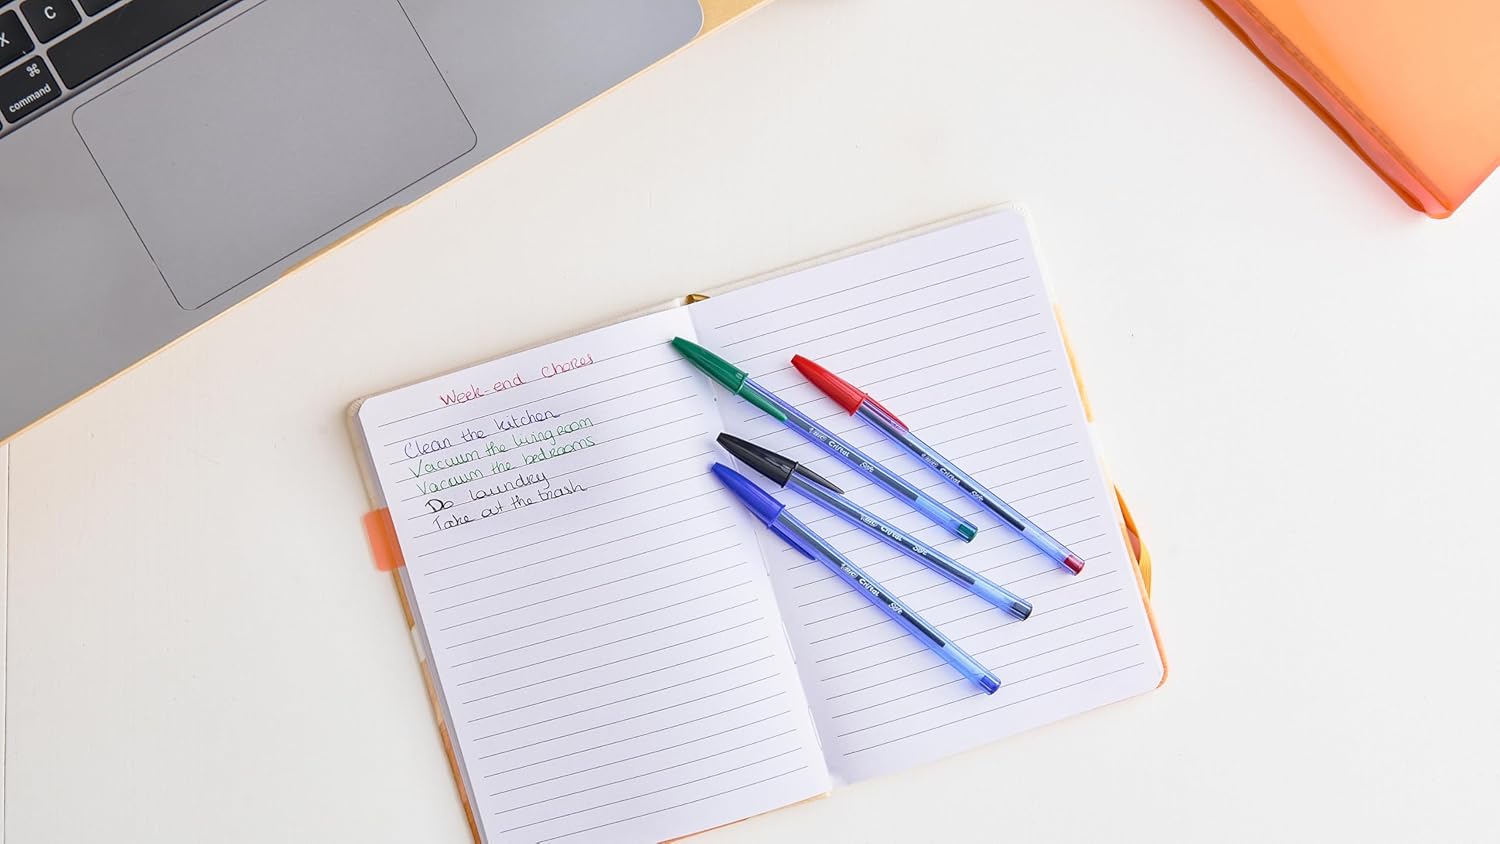 X
C
⌘
command
Week-end Chores
Clean the kitchen
Vacuum the living room
Vacuum the bedrooms
Do laundry
Take out the trash
Cristal
Cristal
Cristal
Cristal